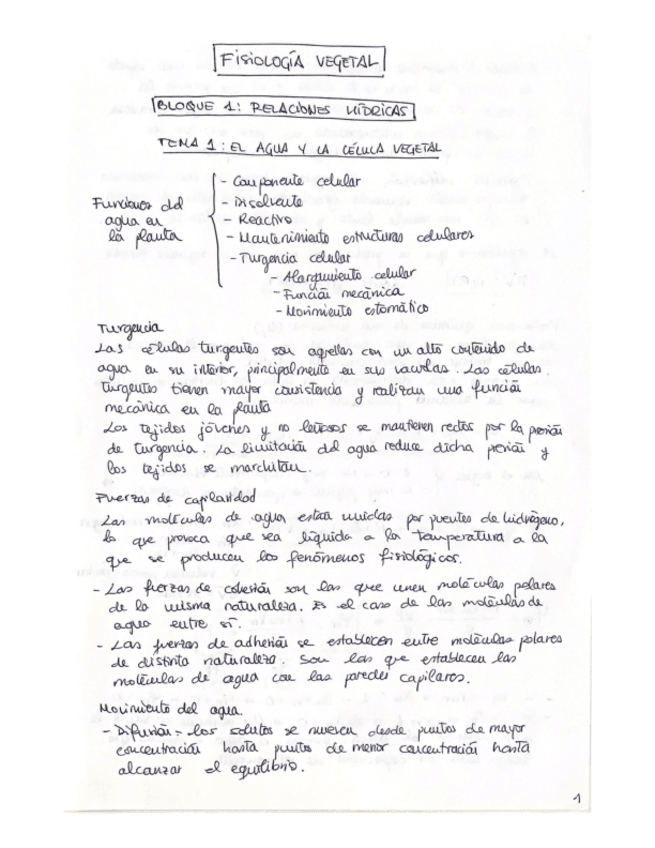 FISIOLOGÍA VEGETAL
BLOQUE 1: RELACIONES HÍDRICAS
TEMA 1: EL AGUA Y LA CÉLULA VEGETAL
Funciones del
agua en
la planta
- Componente celular
- Disolvente
- Reactivo
- Mantenimiento estructuras celulares
- Turgencia celular
- Alargamiento celular
- Función mecánica
- Movimiento estomático
Turgencia
Las células turgentes son aquellas con un alto contenido de
agua en su interior, principalmente en sus vacuolas. Las células
turgentes tienen mayor consistencia y realizan una función
mecánica en la planta
Los tejidos jóvenes y no leñosos se mantienen rectos por la presión
de turgencia. La limitación del agua reduce dicha presión y
los tejidos se marchitan.
Fuerzas de capilaridad
Las moléculas de agua están unidas por puentes de hidrógeno,
lo que provoca que sea líquida a la temperatura a la
que se producen los fenómenos fisiológicos.
- Las fuerzas de cohesión son las que unen moléculas polares
de la misma naturaleza. Es el caso de las moléculas de
agua entre sí.
- Las fuerzas de adhesión se establecen entre moléculas polares
de distinta naturaleza. Son las que establecen las
moléculas de agua con las paredes capilares.
Movimiento del agua.
- Difusión = los solutos se mueven desde puntos de mayor
concentración hasta puntos de menor concentración hasta
alcanzar el equilibrio.
1